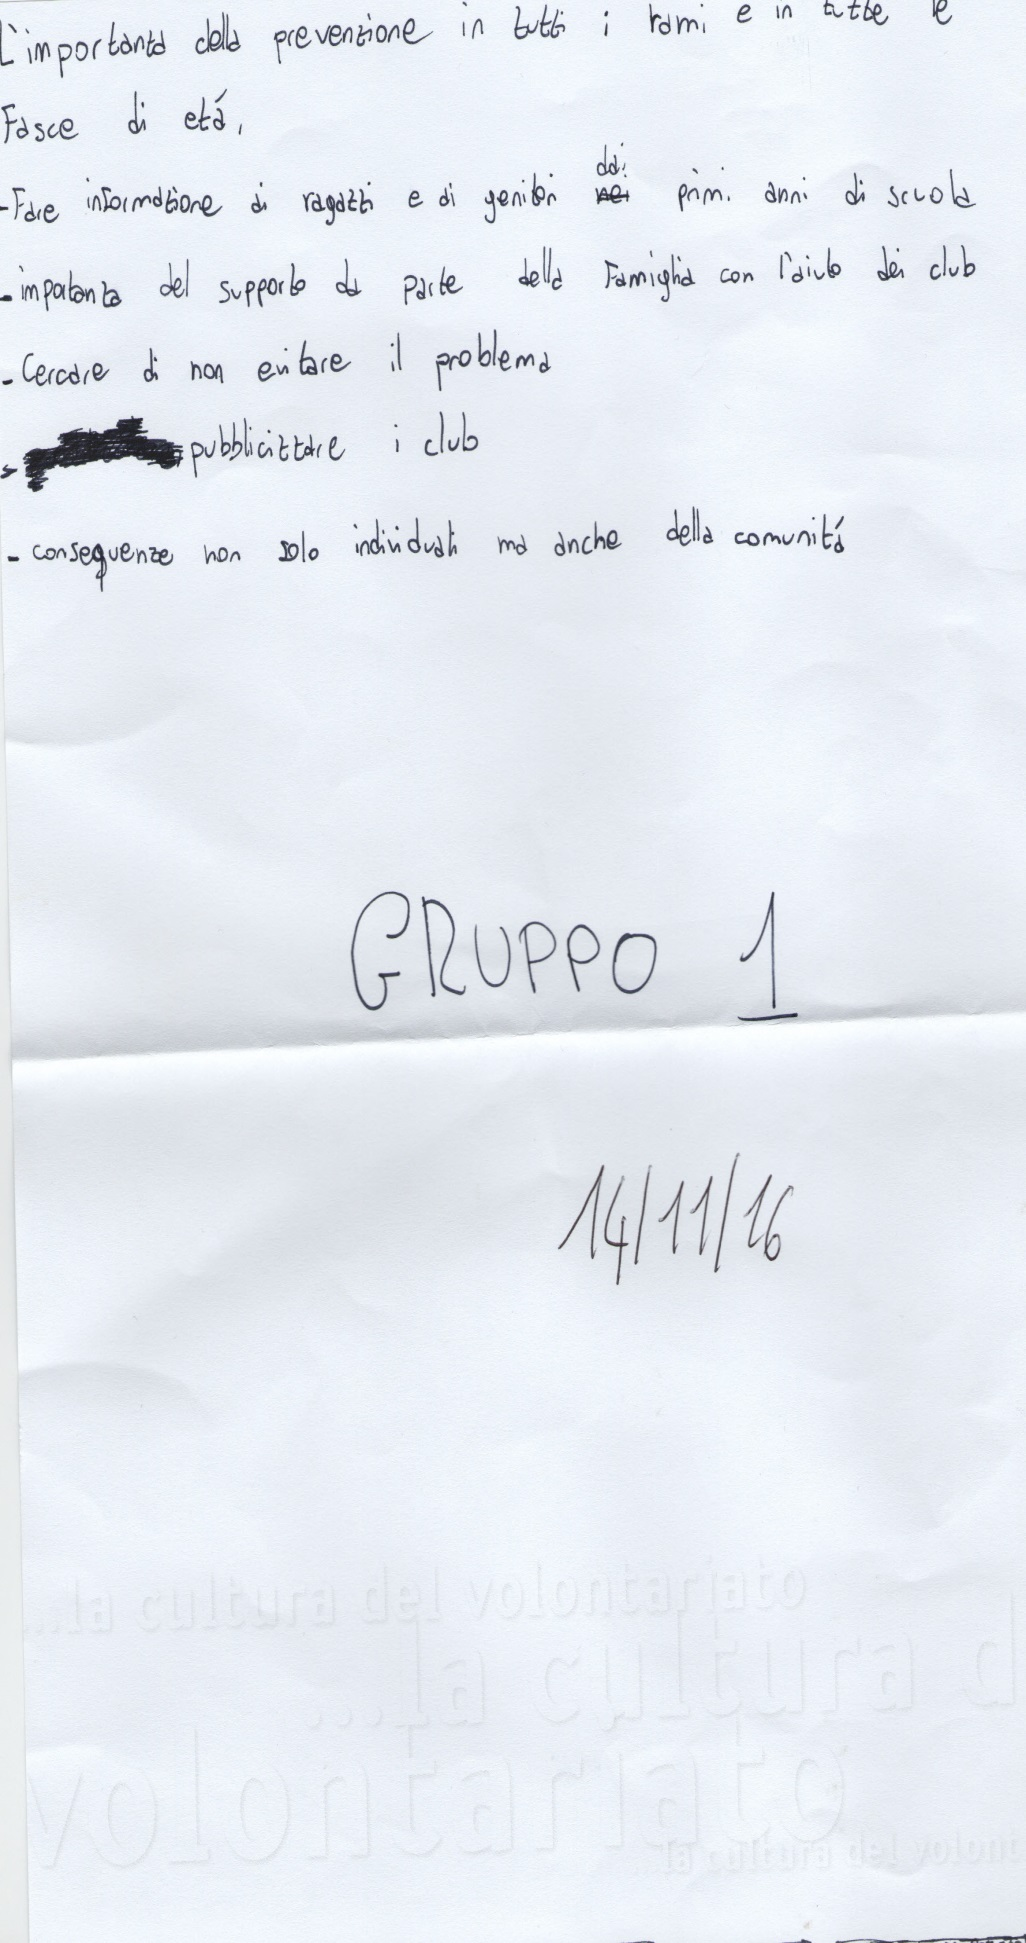 L'importanza della prevenzione in tutti i rami e in tutte le
Fasce di etá,
- Fare informazione ai ragazzi e ai genitori nei dai primi anni di scuola
- importanza del supporto da parte della Famiglia con l'aiuto dei club
- Cercare di non evitare il problema
- pubblicizzare i club
- conseguenze non solo individuali ma anche della comunitá
GRUPPO 1
14/11/16
...la cultura del volontariato
...la cultura d
volontariato
...la cultura del volont